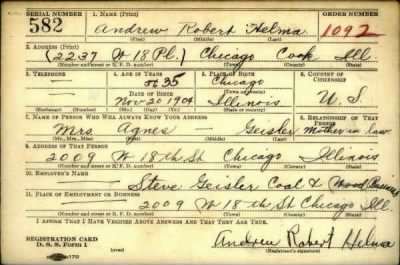 SERIAL NUMBER 1. NAME (Print) ORDER NUMBER
582 Andrew Robert Helma 1092
(First) (Middle) (Last)
2. ADDRESS (Print)
(2237 W 18 Pl.) Chicago Cook Ill.
(Number and street or R. F. D. number) (Town) (County) (State)
3. TELEPHONE 4. AGE IN YEARS 5. PLACE OF BIRTH 6. COUNTRY OF CITIZENSHIP
35 Chicago
DATE OF BIRTH (Town or county)
Nov 20 1904 Illinois U. S.
(Exchange) (No.) (Mo.) (Day) (Yr.) (State or country)
7. NAME OF PERSON WHO WILL ALWAYS KNOW YOUR ADDRESS 8. RELATIONSHIP OF THAT PERSON
Mrs. Agnes Geisler Mother in law
(Mr., Mrs., Miss) (First) (Middle) (Last)
9. ADDRESS OF THAT PERSON
2009 W 18th St Chicago Illinois
(Number and street or R. F. D. number) (Town) (County) (State)
10. EMPLOYER'S NAME
Steve Geisler Coal & Wood Business
11. PLACE OF EMPLOYMENT OR BUSINESS
2009 W 18th St Chicago Ill.
(Number and street or R. F. D. number) (Town) (County) (State)
I AFFIRM THAT I HAVE VERIFIED ABOVE ANSWERS AND THAT THEY ARE TRUE.
REGISTRATION CARD
D. S. S. Form 1 (over) Andrew Robert Helma
(Registrant's signature)